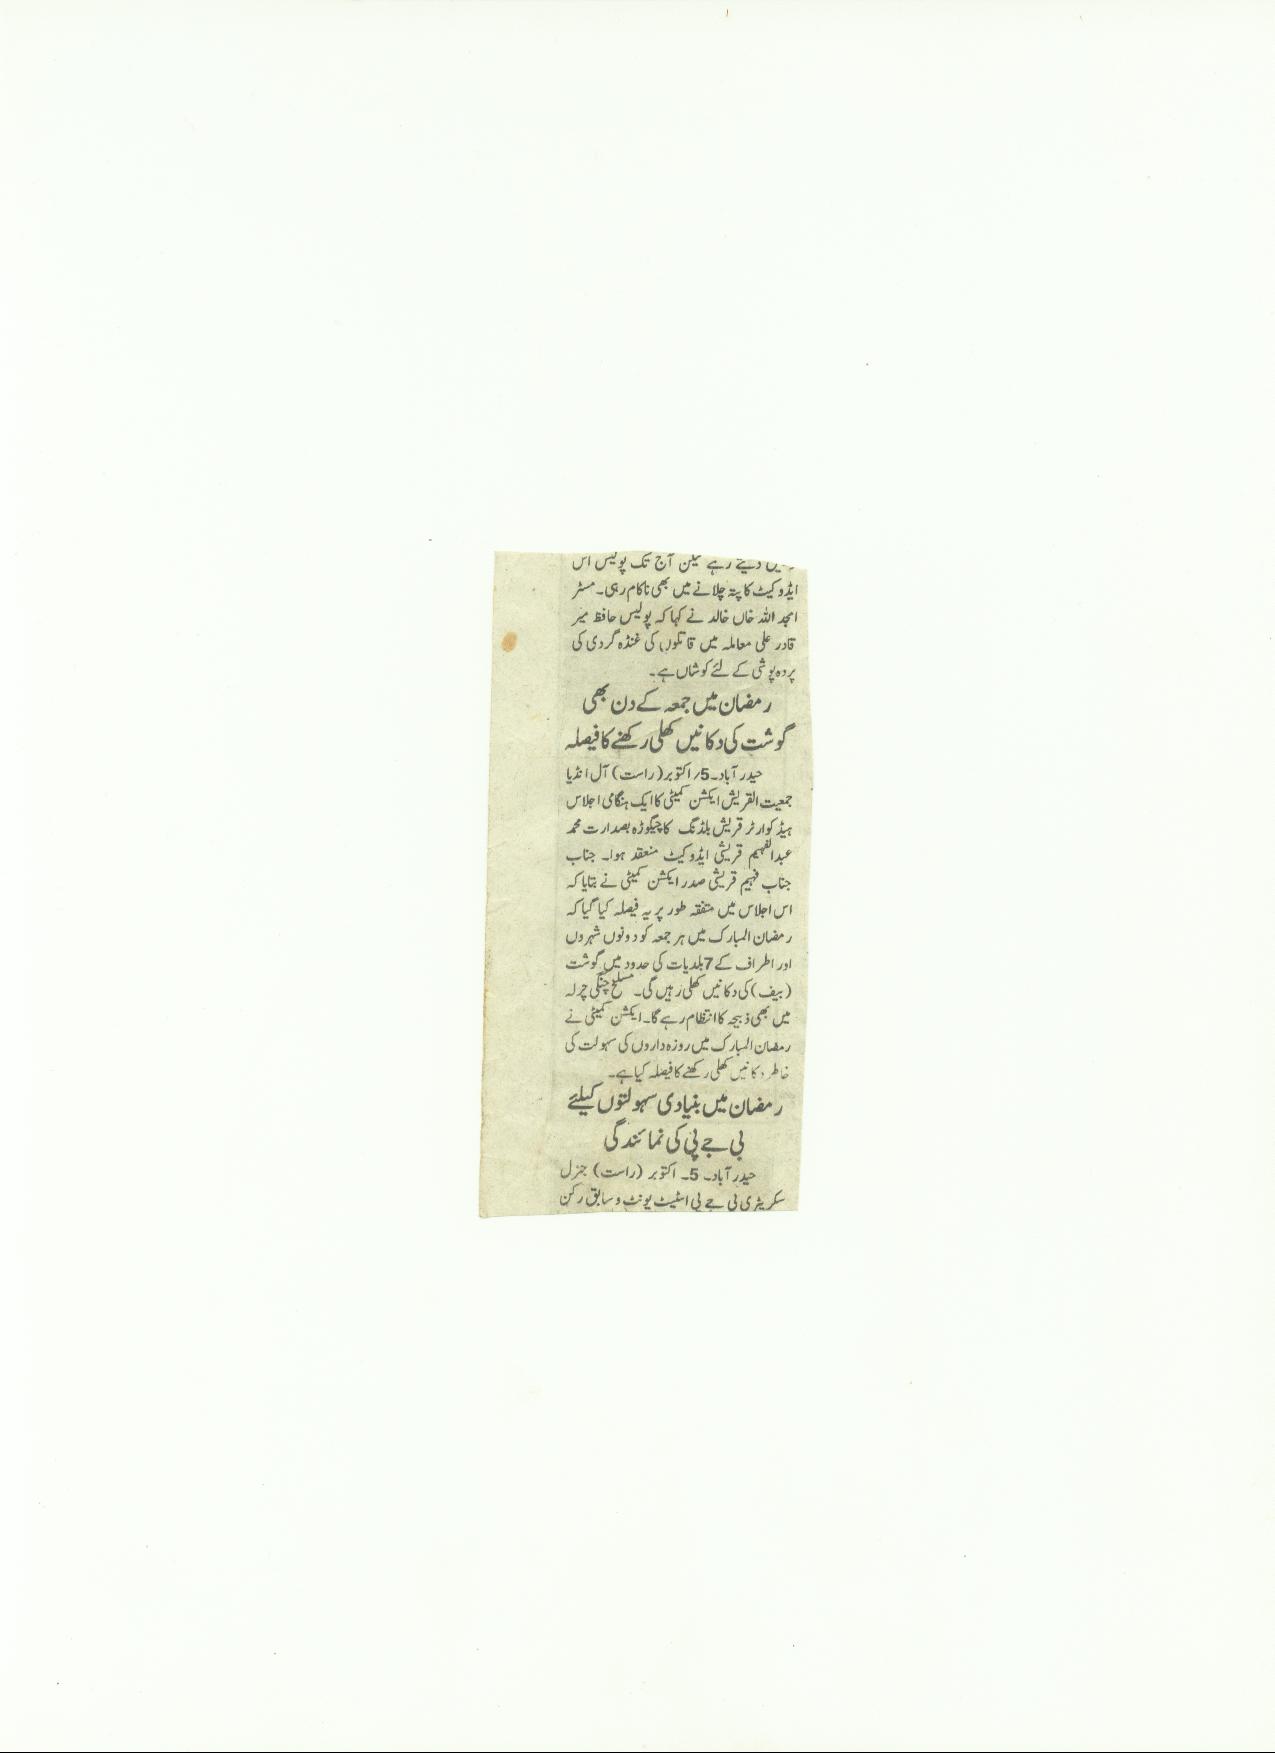 دیتے رہے لیکن آج تک پولیس اس
ایڈوکیٹ کا پتہ چلانے میں بھی ناکام رہی۔ مسٹر
امجد اللہ خاں خالد نے کہا کہ پولیس حافظ میر
قادر علی معاملہ میں قاتلوں کی غنڈہ گردی کی
پردہ پوشی کے لئے کوشاں ہے۔
رمضان میں جمعہ کے دن بھی
گوشت کی دکانیں کھلی رکھنے کا فیصلہ
حیدرآباد۔5؍ اکتوبر (راست) آل انڈیا
جمعیت القریش ایکشن کمیٹی کا ایک ہنگامی اجلاس
ہیڈ کوارٹر قریش بلڈنگ کاچیگوڑہ بصدارت محمد
عبدالفہیم قریشی ایڈوکیٹ منعقد ہوا۔ جناب
جناب فہیم قریشی صدر ایکشن کمیٹی نے بتایا کہ
اس اجلاس میں متفقہ طور پر یہ فیصلہ کیا گیا کہ
رمضان المبارک میں ہر جمعہ کو دونوں شہروں
اور اطراف کے 7 بلدیات کی حدود میں گوشت
(بیف) کی دکانیں کھلی رہیں گی۔ مسلخ چنگی چرلہ
میں بھی ذبیحہ کا انتظام رہے گا۔ ایکشن کمیٹی نے
رمضان المبارک میں روزہ داروں کی سہولت کی
خاطر دکانیں کھلی رکھنے کا فیصلہ کیا ہے۔
رمضان میں بنیادی سہولتوں کیلئے
بی جے پی کی نمائندگی
حیدرآباد۔ 5۔ اکتوبر (راست) جنرل
سکریٹری بی جے پی اسٹیٹ یونٹ و سابق رکن